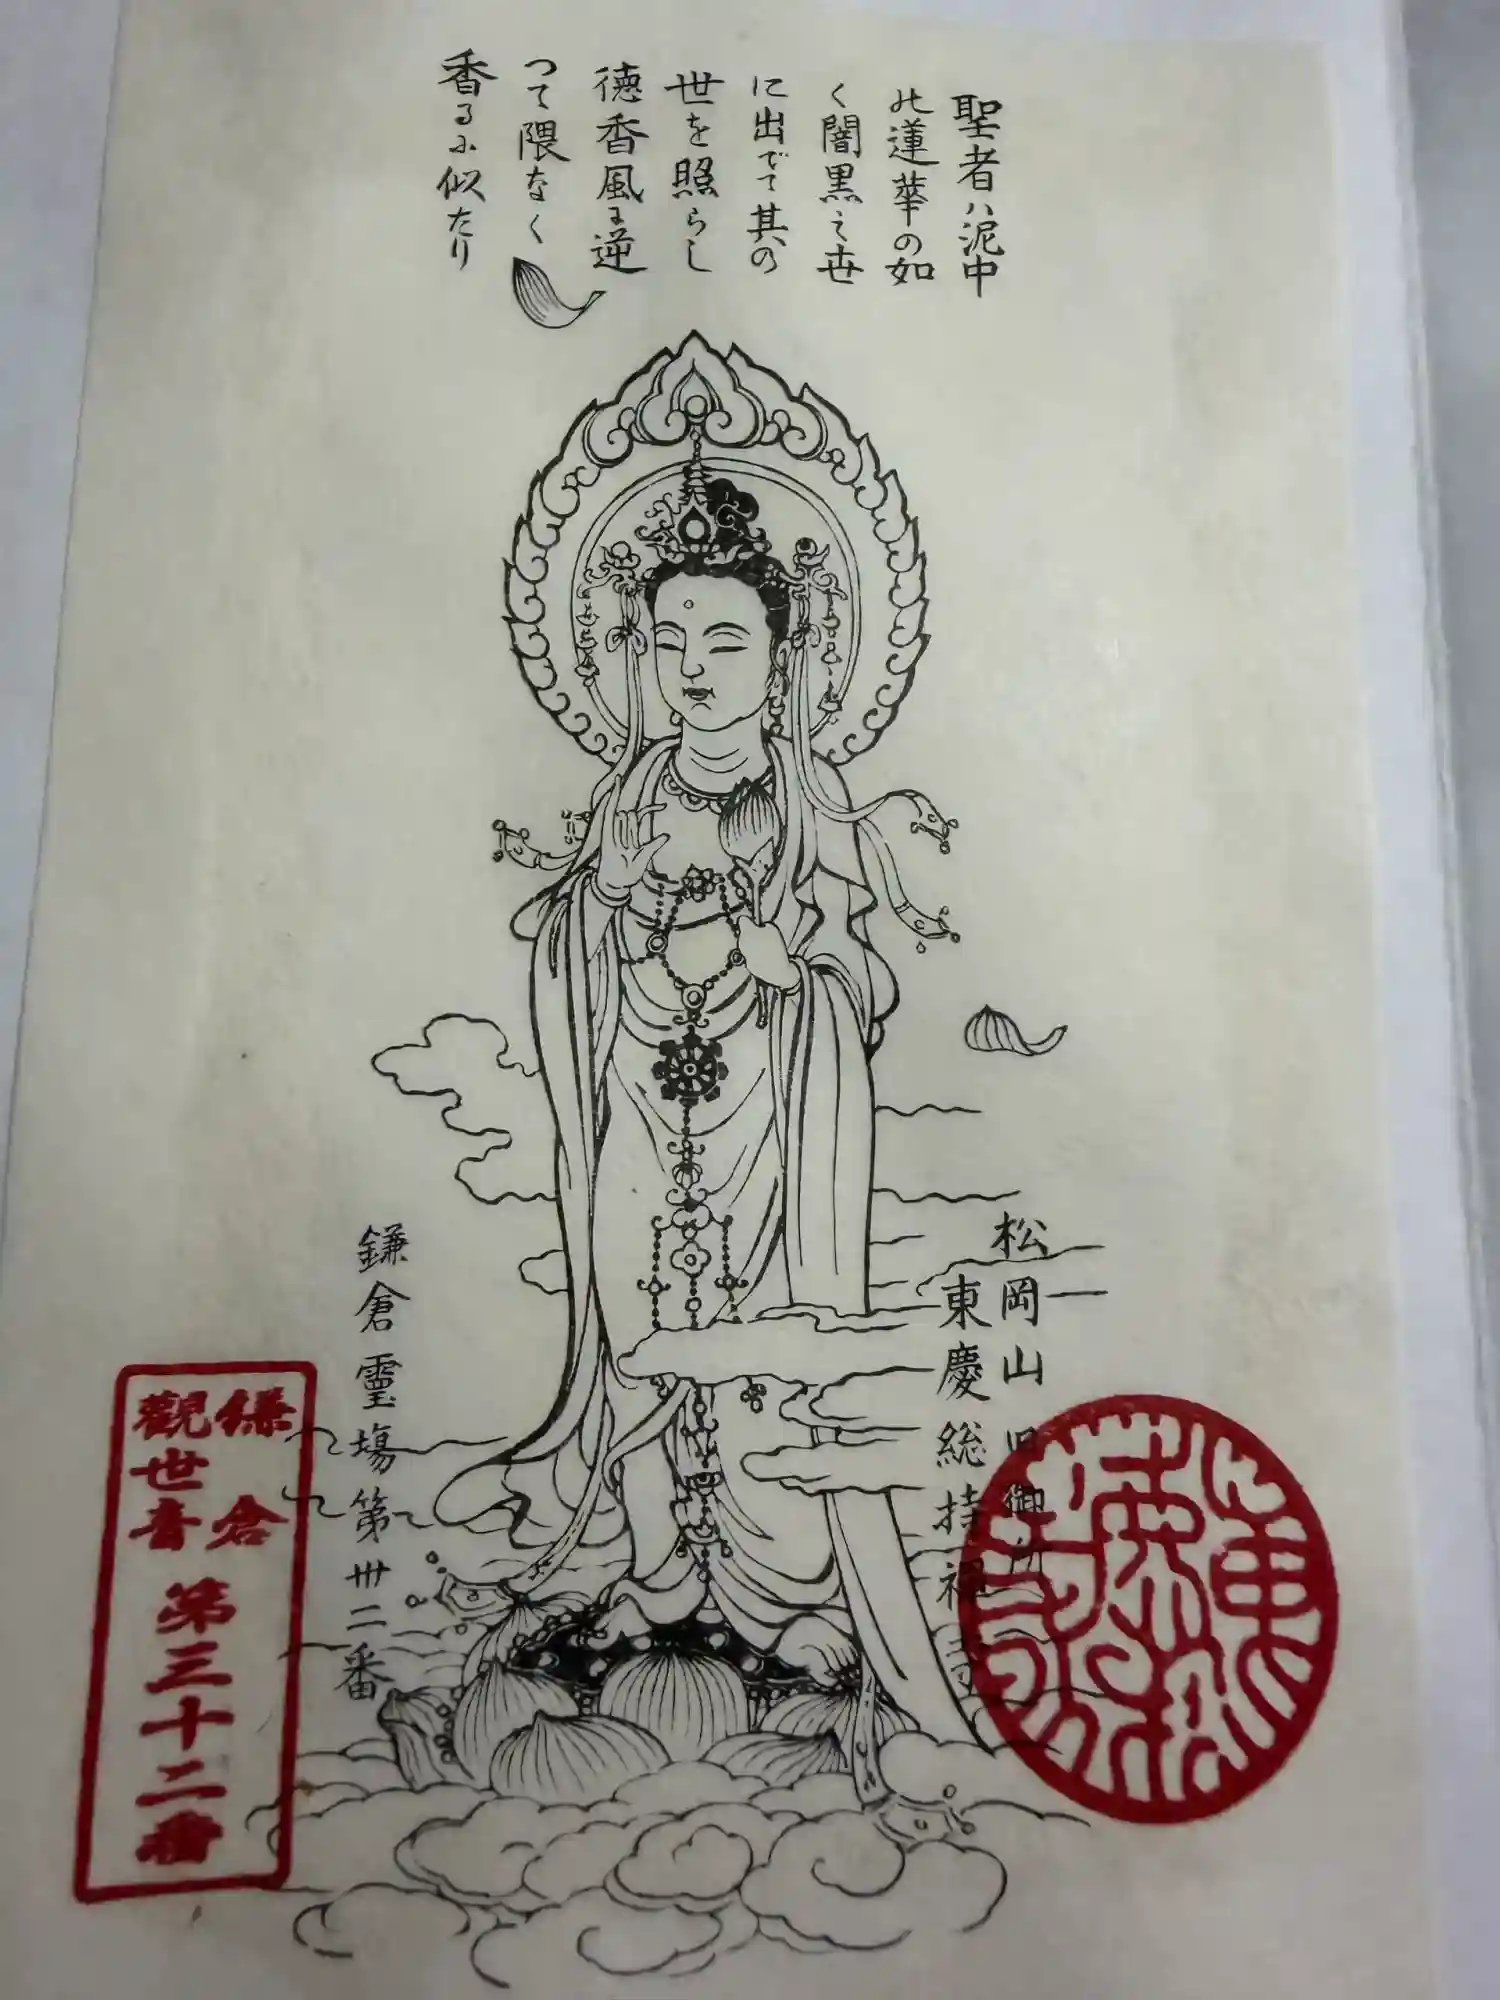 聖者ハ泥中
の蓮華の如
く闇黒之世
に出でて其の
世を照らし
徳香風に逆
つて隈なく
香るに似たり
松岡山 旧御所
東慶総持禅寺
鎌倉霊場第卅二番
鎌倉
観世音
第三十二番